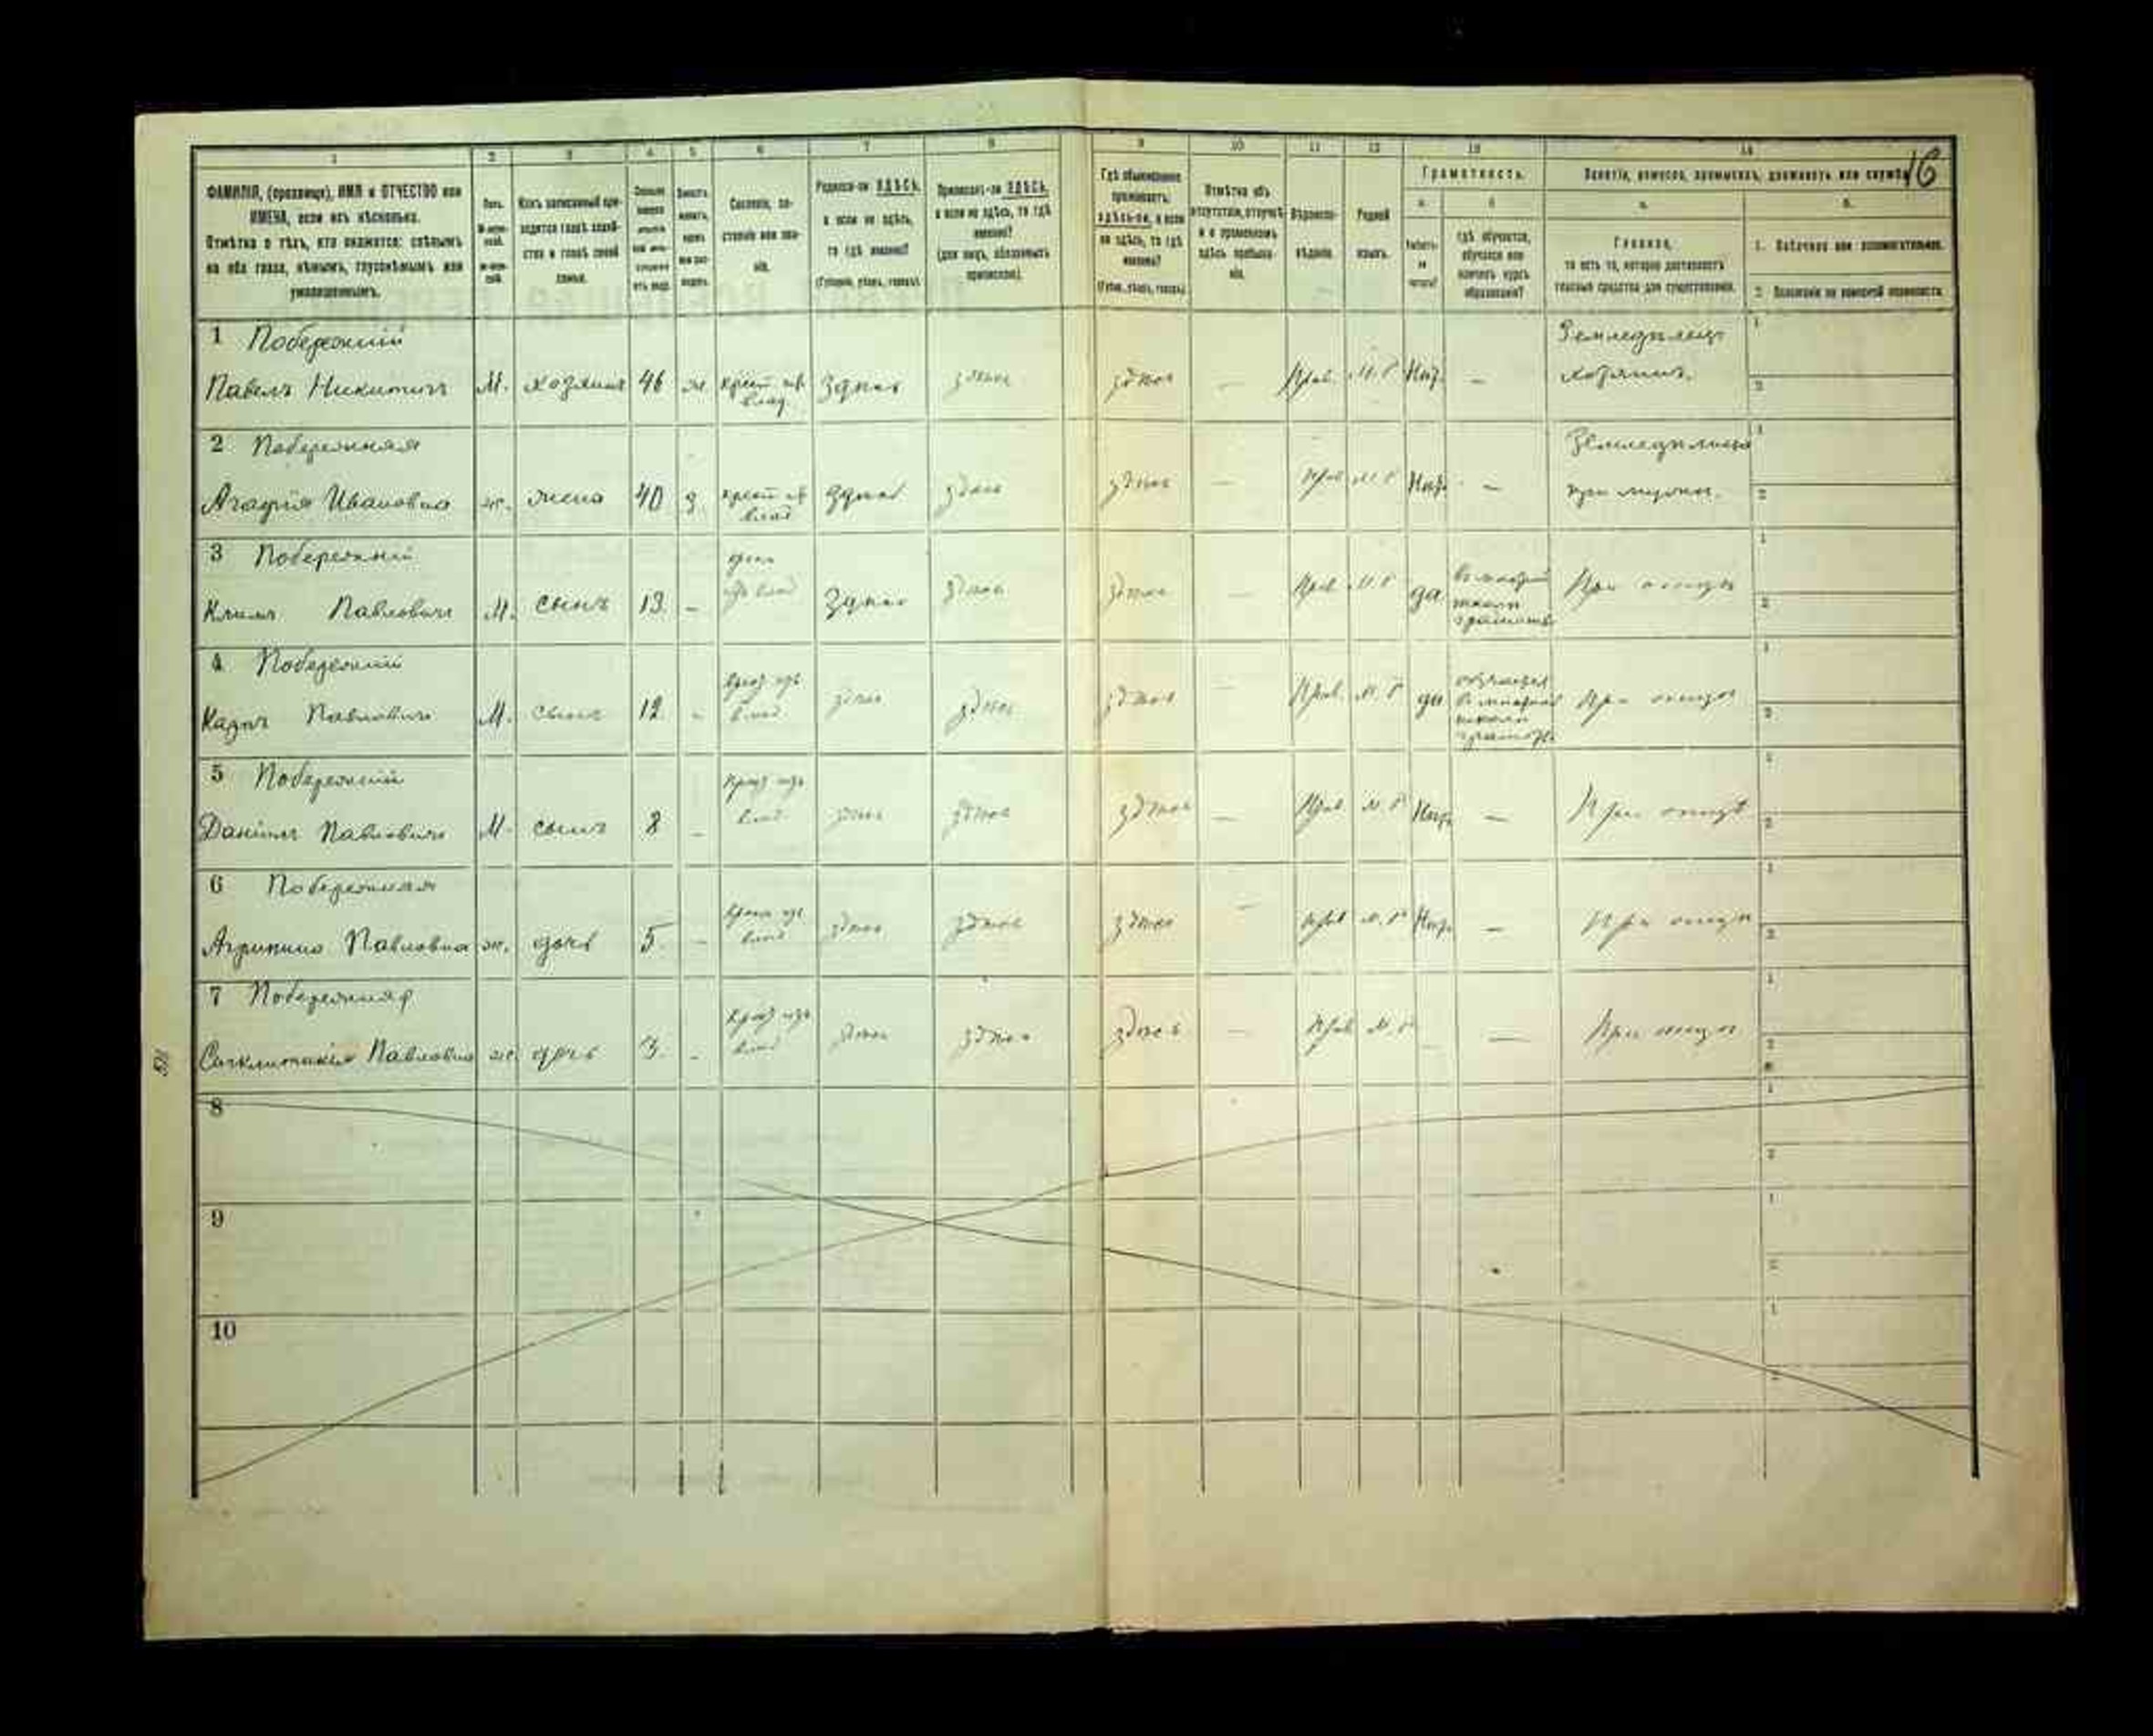 1 2 3 4 5 6 7 8 9 10 11 12 13 14
16
ФАМИЛІЯ, (прозвище), ИМЯ и ОТЧЕСТВО или
ИМЕНА, если ихъ нѣсколько.
Отмѣтка о тѣхъ, кто окажется: слѣпымъ
на оба глаза, нѣмымъ, глухонѣмымъ или
умалишеннымъ.
Полъ.
Какъ записанный при-
ходится главѣ хозяй-
ства и главѣ своей
семьи.
Сословіе, со-
стояніе или зва-
ніе.
Родился-ли ЗДѢСЬ,
а если не здѣсь,
то гдѣ именно?
(Губернія, уѣздъ, городъ).
Приписанъ-ли ЗДѢСЬ,
а если не здѣсь, то гдѣ
именно?
(для лицъ, обязанныхъ
припискою).
Гдѣ обыкновенно
проживаетъ:
здѣсь-ли, а если
не здѣсь, то гдѣ
именно?
(Губ., уѣздъ, городъ).
Отмѣтка объ
отсутствіи, отлучкѣ
и о временномъ
здѣсь пребыва-
ніи.
Вѣроиспо-
вѣданіе.
Родной
языкъ.
Грамотность.
а. б.
Умѣетъ-
ли
читать?
гдѣ обучается,
обучался или
кончилъ курсъ
образованія?
Занятіе, ремесло, промыселъ, должность или служба.
а. б.
Главное,
то есть то, которое доставляетъ
главныя средства для существованія.
1. Побочное или вспомогательное.
2. Положеніе по воинской повинности.
1 Побережній
Павелъ Никитичъ М. хозяинъ 46 ж Здѣсь здѣсь здѣсь — Прав. М. Р Нѣтъ —
Земледѣлецъ
хозяинъ.
1
2
2 Побережная
Агафія Ивановна ж. жена 40 з. здѣсь здѣсь здѣсь — Прав М Р Нѣтъ —
1
2
3 Побережній
Климъ Павловичъ М. сынъ 13 — Здѣсь здѣсь здѣсь — Прав. М. Р да При отцѣ
1
2
4 Побережній
Павловичъ М. сынъ 12 — здѣсь здѣсь здѣсь — Прав. М. Р да При отцѣ
1
2
5 Побережній
Даніилъ Павловичъ М. сынъ 8 — здѣсь здѣсь здѣсь — Прав. М. Р Нѣтъ — При отцѣ
1
2
6 Побережная
Агрипина Павловна ж. дочь 5 — здѣсь здѣсь здѣсь — Прав М. Р Нѣтъ — При отцѣ
1
2
7 Побережная
Павловна ж. дочь 3 — здѣсь здѣсь здѣсь — Прав М. Р — — При отцѣ
1
2
8
1
2
9
1
2
10
1
2